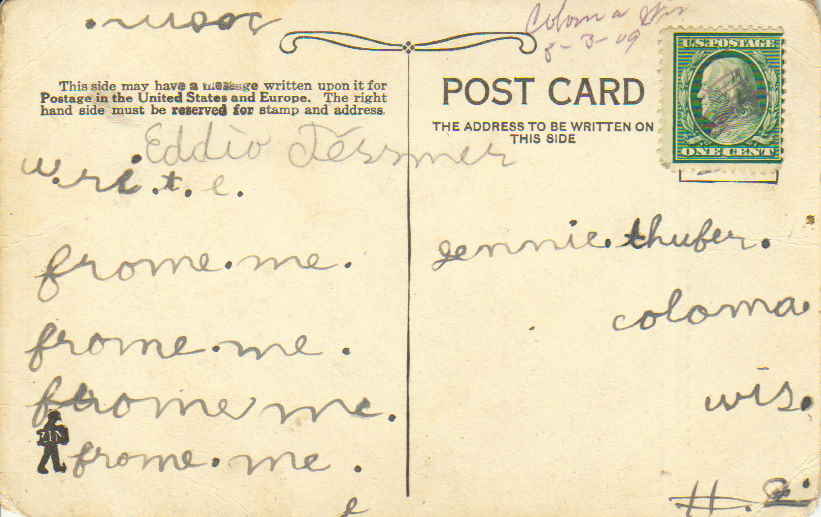 Coloma Wis
8-3-09
This side may have a message written upon it for
Postage in the United States and Europe. The right
hand side must be reserved for stamp and address.
w.ri.t.e.
frome.me.
frome.me.
frome me.
frome.me.
POST CARD
THE ADDRESS TO BE WRITTEN ON
THIS SIDE
U.S. POSTAGE
ONE CENT
jennie.thufer.
coloma.
wis.